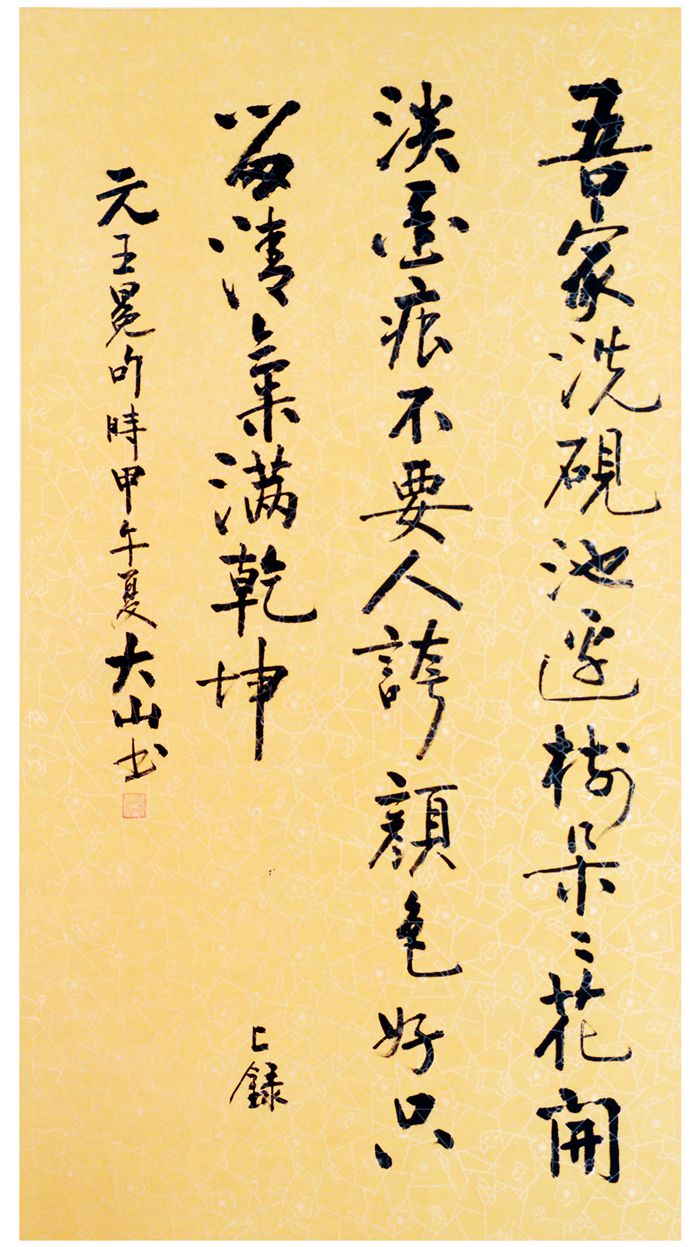 吾家洗硯池邊樹朵〻花開
淡墨痕不要人誇顔色好只
留清氣满乾坤
上錄
元王冕句時甲午夏大山书